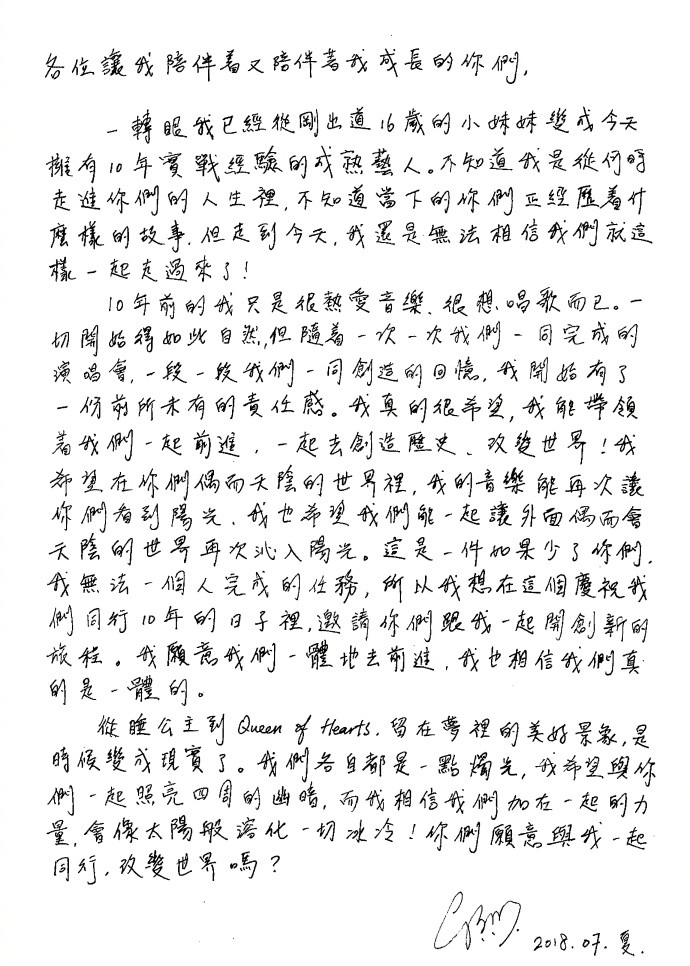 各位讓我陪伴着又陪伴著我成長的你們，
一轉眼我已經從剛出道16歲的小妹妹變成今天
擁有10年實戰經驗的成熟藝人。不知道我是從何時
走進你們的人生裡，不知道當下的你們正經歷着什
麼樣的故事，但走到今天，我還是無法相信我們就這
樣一起走過來了！
10年前的我只是很熱愛音樂、很想唱歌而已。一
切開始得如此自然，但隨着一次一次我們一同完成的
演唱會，一段一段我們一同創造的回憶，我開始有了
一份前所未有的責任感。我真的很希望，我能帶領
著我們一起前進，一起去創造歷史、改變世界！我
希望在你們偶而天陰的世界裡，我的音樂能再次讓
你們看到陽光、我也希望我們能一起讓外面偶而會
天陰的世界再次沁入陽光。這是一件如果少了你們，
我無法一個人完成的任務，所以我想在這個慶祝我
們同行10年的日子裡，邀請你們跟我一起開創新的
旅程。我願意我們一體地去前進，我也相信我們真
的是一體的。
從睡公主到Queen of Hearts，留在夢裡的美好景象，是
時候變成現實了。我們各自都是一點燭光，我希望與你
們一起照亮四周的幽暗，而我相信我們加在一起的力
量，會像太陽般溶化一切冰冷！你們願意與我一起
同行，改變世界嗎？
2018.07.夏.